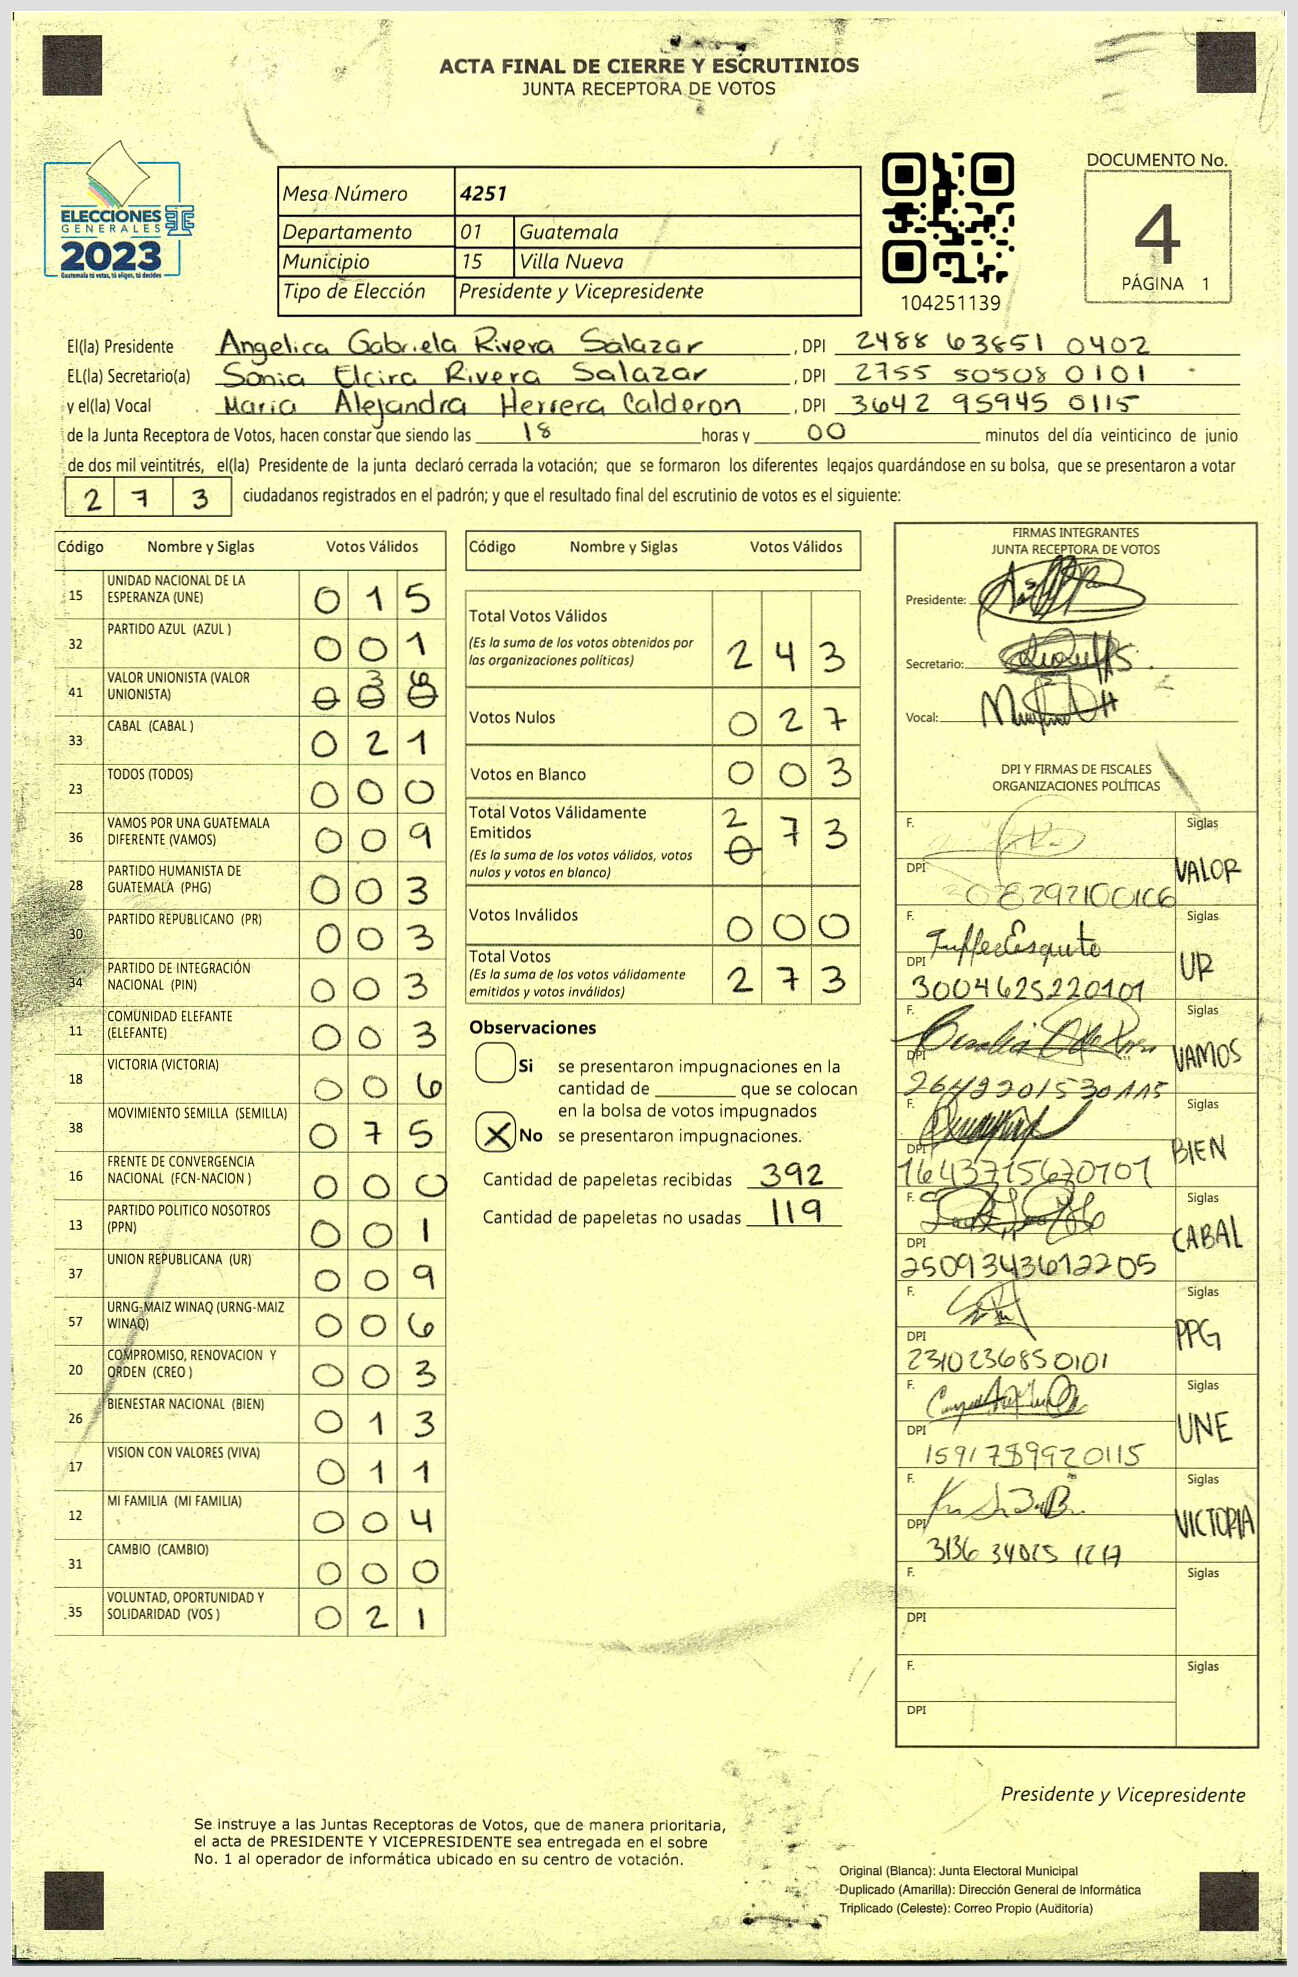 ACTA FINAL DE CIERRE Y ESCRUTINIOS
JUNTA RECEPTORA DE VOTOS
ELECCIONES
GENERALES
2023
Guatemala tú votas, tú eliges, tú decides
Mesa Número 4251
Departamento 01 Guatemala
Municipio 15 Villa Nueva
Tipo de Elección Presidente y Vicepresidente
104251139
DOCUMENTO No.
4
PÁGINA 1
El(la) Presidente Angelica Gabriela Rivera Salazar, DPI 2488 63851 0402
EL(la) Secretario(a) Sonia Elcira Rivera Salazar, DPI 2755 50508 0101
y el(la) Vocal Maria Alejandra Herrera Calderon, DPI 3642 95945 0115
de la Junta Receptora de Votos, hacen constar que siendo las 18 horas y 00 minutos del día veinticinco de junio
de dos mil veintitrés, el(la) Presidente de la junta declaró cerrada la votación; que se formaron los diferentes legajos guardándose en su bolsa, que se presentaron a votar
273 ciudadanos registrados en el padrón; y que el resultado final del escrutinio de votos es el siguiente:
Código Nombre y Siglas Votos Válidos
15 UNIDAD NACIONAL DE LA ESPERANZA (UNE) 015
32 PARTIDO AZUL (AZUL ) 001
41 VALOR UNIONISTA (VALOR UNIONISTA) 0 3 6
33 CABAL (CABAL ) 021
23 TODOS (TODOS) 000
36 VAMOS POR UNA GUATEMALA DIFERENTE (VAMOS) 009
28 PARTIDO HUMANISTA DE GUATEMALA (PHG) 003
30 PARTIDO REPUBLICANO (PR) 003
34 PARTIDO DE INTEGRACIÓN NACIONAL (PIN) 003
11 COMUNIDAD ELEFANTE (ELEFANTE) 003
18 VICTORIA (VICTORIA) 006
38 MOVIMIENTO SEMILLA (SEMILLA) 075
16 FRENTE DE CONVERGENCIA NACIONAL (FCN-NACION ) 000
13 PARTIDO POLITICO NOSOTROS (PPN) 001
37 UNION REPUBLICANA (UR) 009
57 URNG-MAIZ WINAQ (URNG-MAIZ WINAQ) 006
20 COMPROMISO, RENOVACION Y ORDEN (CREO ) 003
26 BIENESTAR NACIONAL (BIEN) 013
17 VISION CON VALORES (VIVA) 011
12 MI FAMILIA (MI FAMILIA) 004
31 CAMBIO (CAMBIO) 000
35 VOLUNTAD, OPORTUNIDAD Y SOLIDARIDAD (VOS ) 021
Código Nombre y Siglas Votos Válidos
Total Votos Válidos 243
(Es la suma de los votos obtenidos por
las organizaciones políticas)
Votos Nulos 027
Votos en Blanco 003
Total Votos Válidamente Emitidos 273
(Es la suma de los votos válidos, votos
nulos y votos en blanco)
Votos Inválidos 000
Total Votos 273
(Es la suma de los votos válidamente
emitidos y votos inválidos)
Observaciones
Si se presentaron impugnaciones en la
cantidad de ________ que se colocan
en la bolsa de votos impugnados
X No se presentaron impugnaciones.
Cantidad de papeletas recibidas 392
Cantidad de papeletas no usadas 119
FIRMAS INTEGRANTES
JUNTA RECEPTORA DE VOTOS
Presidente:
Secretario:
Vocal:
DPI Y FIRMAS DE FISCALES
ORGANIZACIONES POLÍTICAS
F. Siglas
DPI 3028292100106 VALOR
F. Siglas
DPI 3004625220101 UR
F. Siglas
DPI 2642201530115 VAMOS
F. Siglas
DPI 1643715670101 BIEN
F. Siglas
DPI 2509343612205 CABAL
F. Siglas
DPI 2310236850101 PPG
F. Siglas
DPI 1591789920115 UNE
F. Siglas
DPI VICTORIA
F. Siglas
DPI
F. Siglas
DPI
Presidente y Vicepresidente
Se instruye a las Juntas Receptoras de Votos, que de manera prioritaria,
el acta de PRESIDENTE Y VICEPRESIDENTE sea entregada en el sobre
No. 1 al operador de informática ubicado en su centro de votación.
Original (Blanca): Junta Electoral Municipal
Duplicado (Amarilla): Dirección General de Informática
Triplicado (Celeste): Correo Propio (Auditoría)